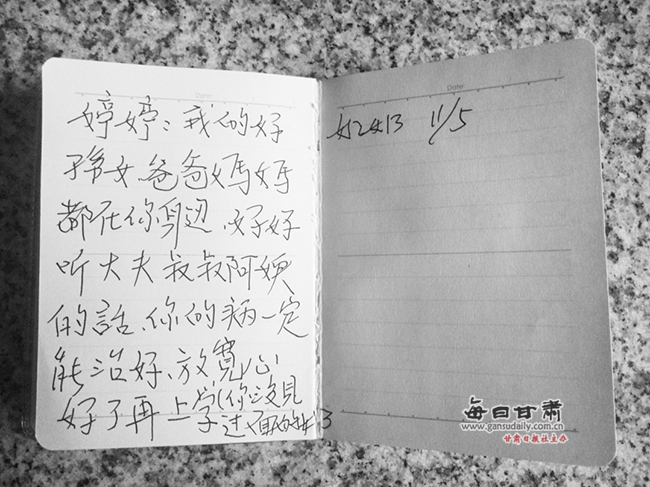 Date:
婷婷：我的好
孙女、爸爸妈妈
都在你身边、好好
听大夫叔叔阿姨
的話、你的病一定
能治好、放寬心
好了再上学(你没見
过面的
Date:
11/5
每日甘肃
www.gansudaily.com.cn
甘肃日报社主办